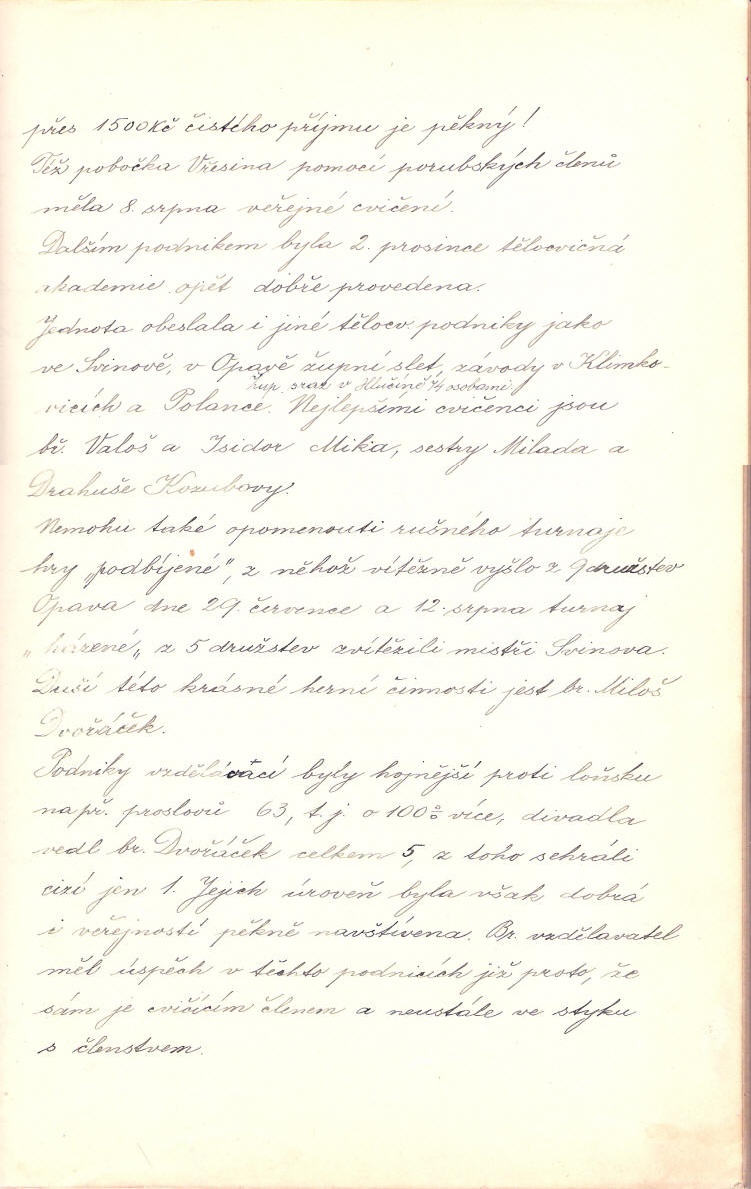 přes 1500Kč čistého příjmu je pěkný!
Též pobočka Vřesina pomocí porubských členů
měla 8. srpna veřejné cvičení.
Dalším podnikem byla 2. prosince tělocvičná
akademie opět dobře provedena.
Jednota obeslala i jiné tělocv. podniky jako
ve Svinově, v Opavě župní slet, závody v Klimko-
žup. sraz v Hlučíně 74 osobami.
vicích a Polance. Nejlepšími cvičenci jsou
bř. Valoš a Isidor Mika, sestry Milada a
Drahuše Kozubovy.
Nemohu také opomenouti rušného turnaje
hry „podbíjené", z něhož vítězně vyšlo z 9 družstev
Opava dne 29. července a 12. srpna turnaj
„házené„ z 5 družstev zvítězili mistři Svinova.
Duší této krásné herní činnosti jest br. Miloš
Dvořáček.
Podniky vzdělávací byly hojnější proti loňsku
např. proslovů 63, t.j. o 100% více, divadla
vedl br. Dvořáček celkem 5, z toho sehráli
cizí jen 1. Jejich úroveň byla však dobrá
i veřejností pěkně navštívena. Br. vzdělavatel
měl úspěch v těchto podnicích již proto, že
sám je cvičícím členem a neustále ve styku
s členstvem.